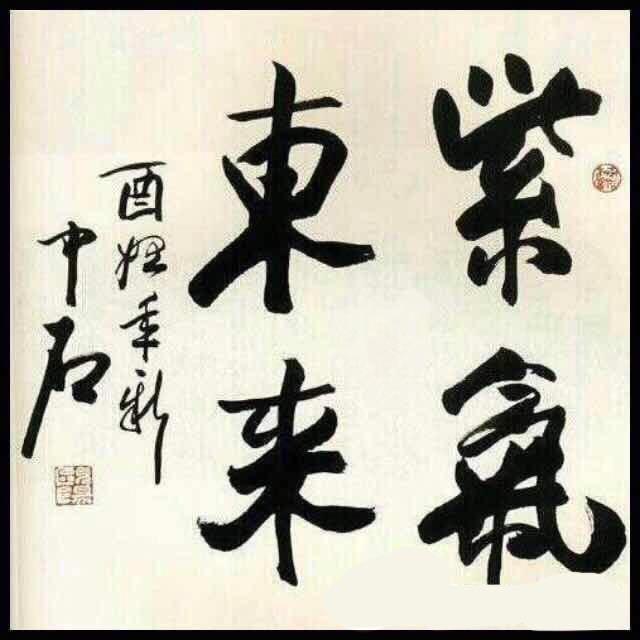 紫氣
東来
酉年新
中石